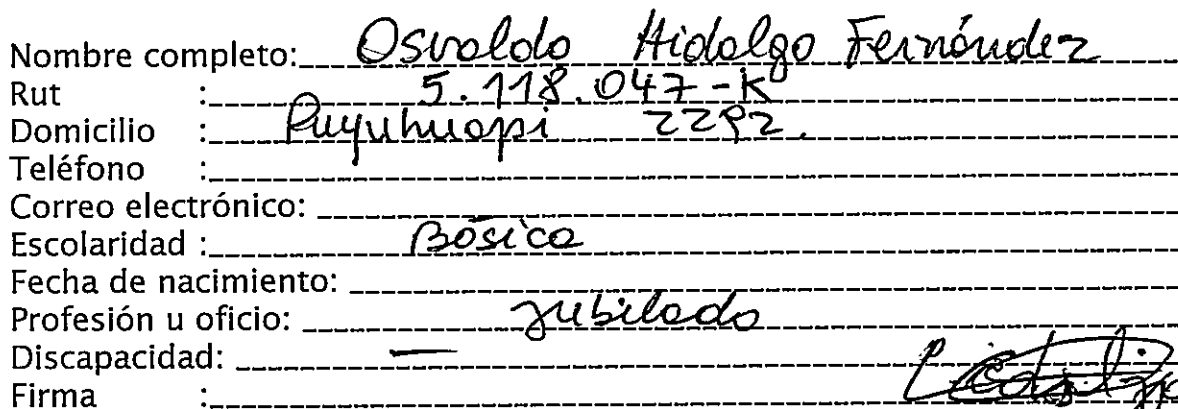 Nombre completo: Osvaldo Hidalgo Fernández
Rut : 5.118.047-K
Domicilio : Puyuhuapi 2292.
Teléfono :
Correo electrónico:
Escolaridad : Básica
Fecha de nacimiento:
Profesión u oficio: Jubilado
Discapacidad: —
Firma :